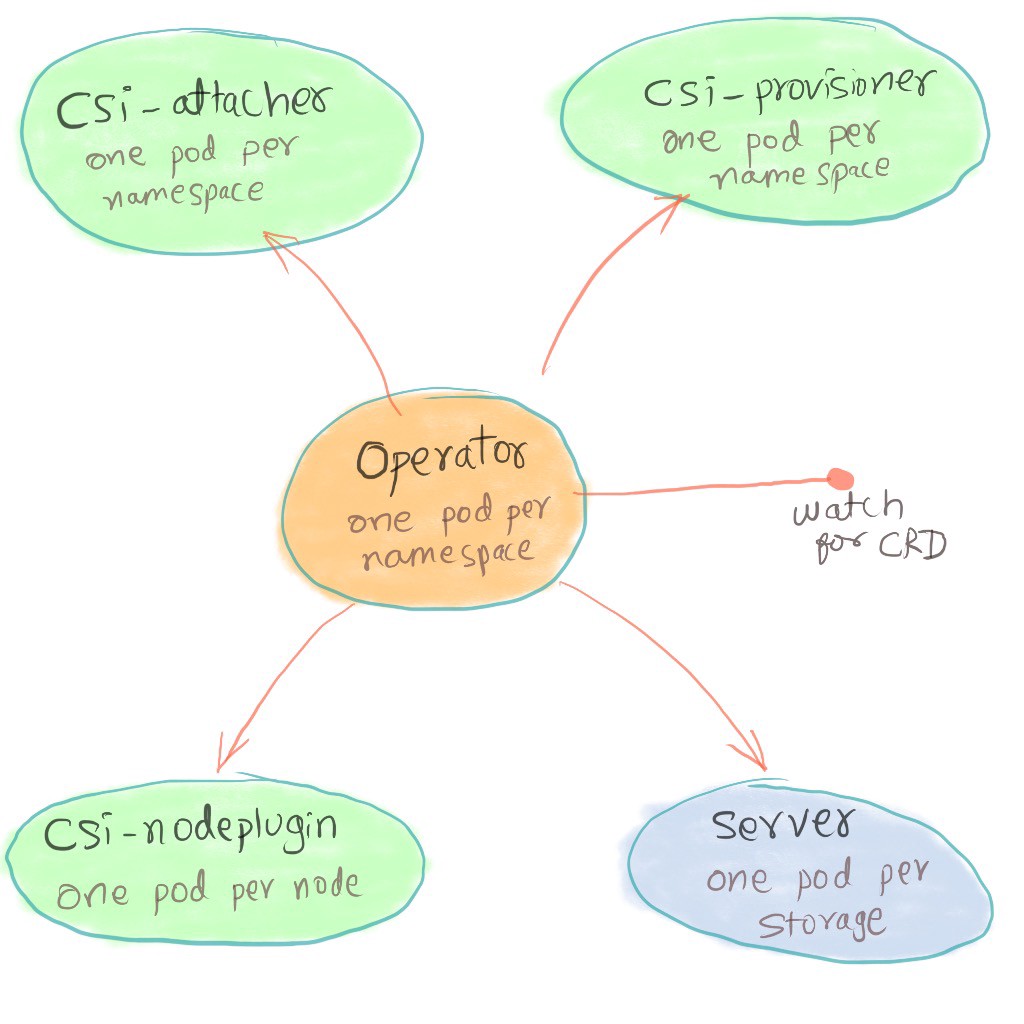 Csi-attacher
one pod per
namespace
Csi-provisioner
one pod per
namespace
Operator
one pod per
namespace
watch
for CRD
Csi-nodeplugin
one pod per node
Server
one pod per
Storage